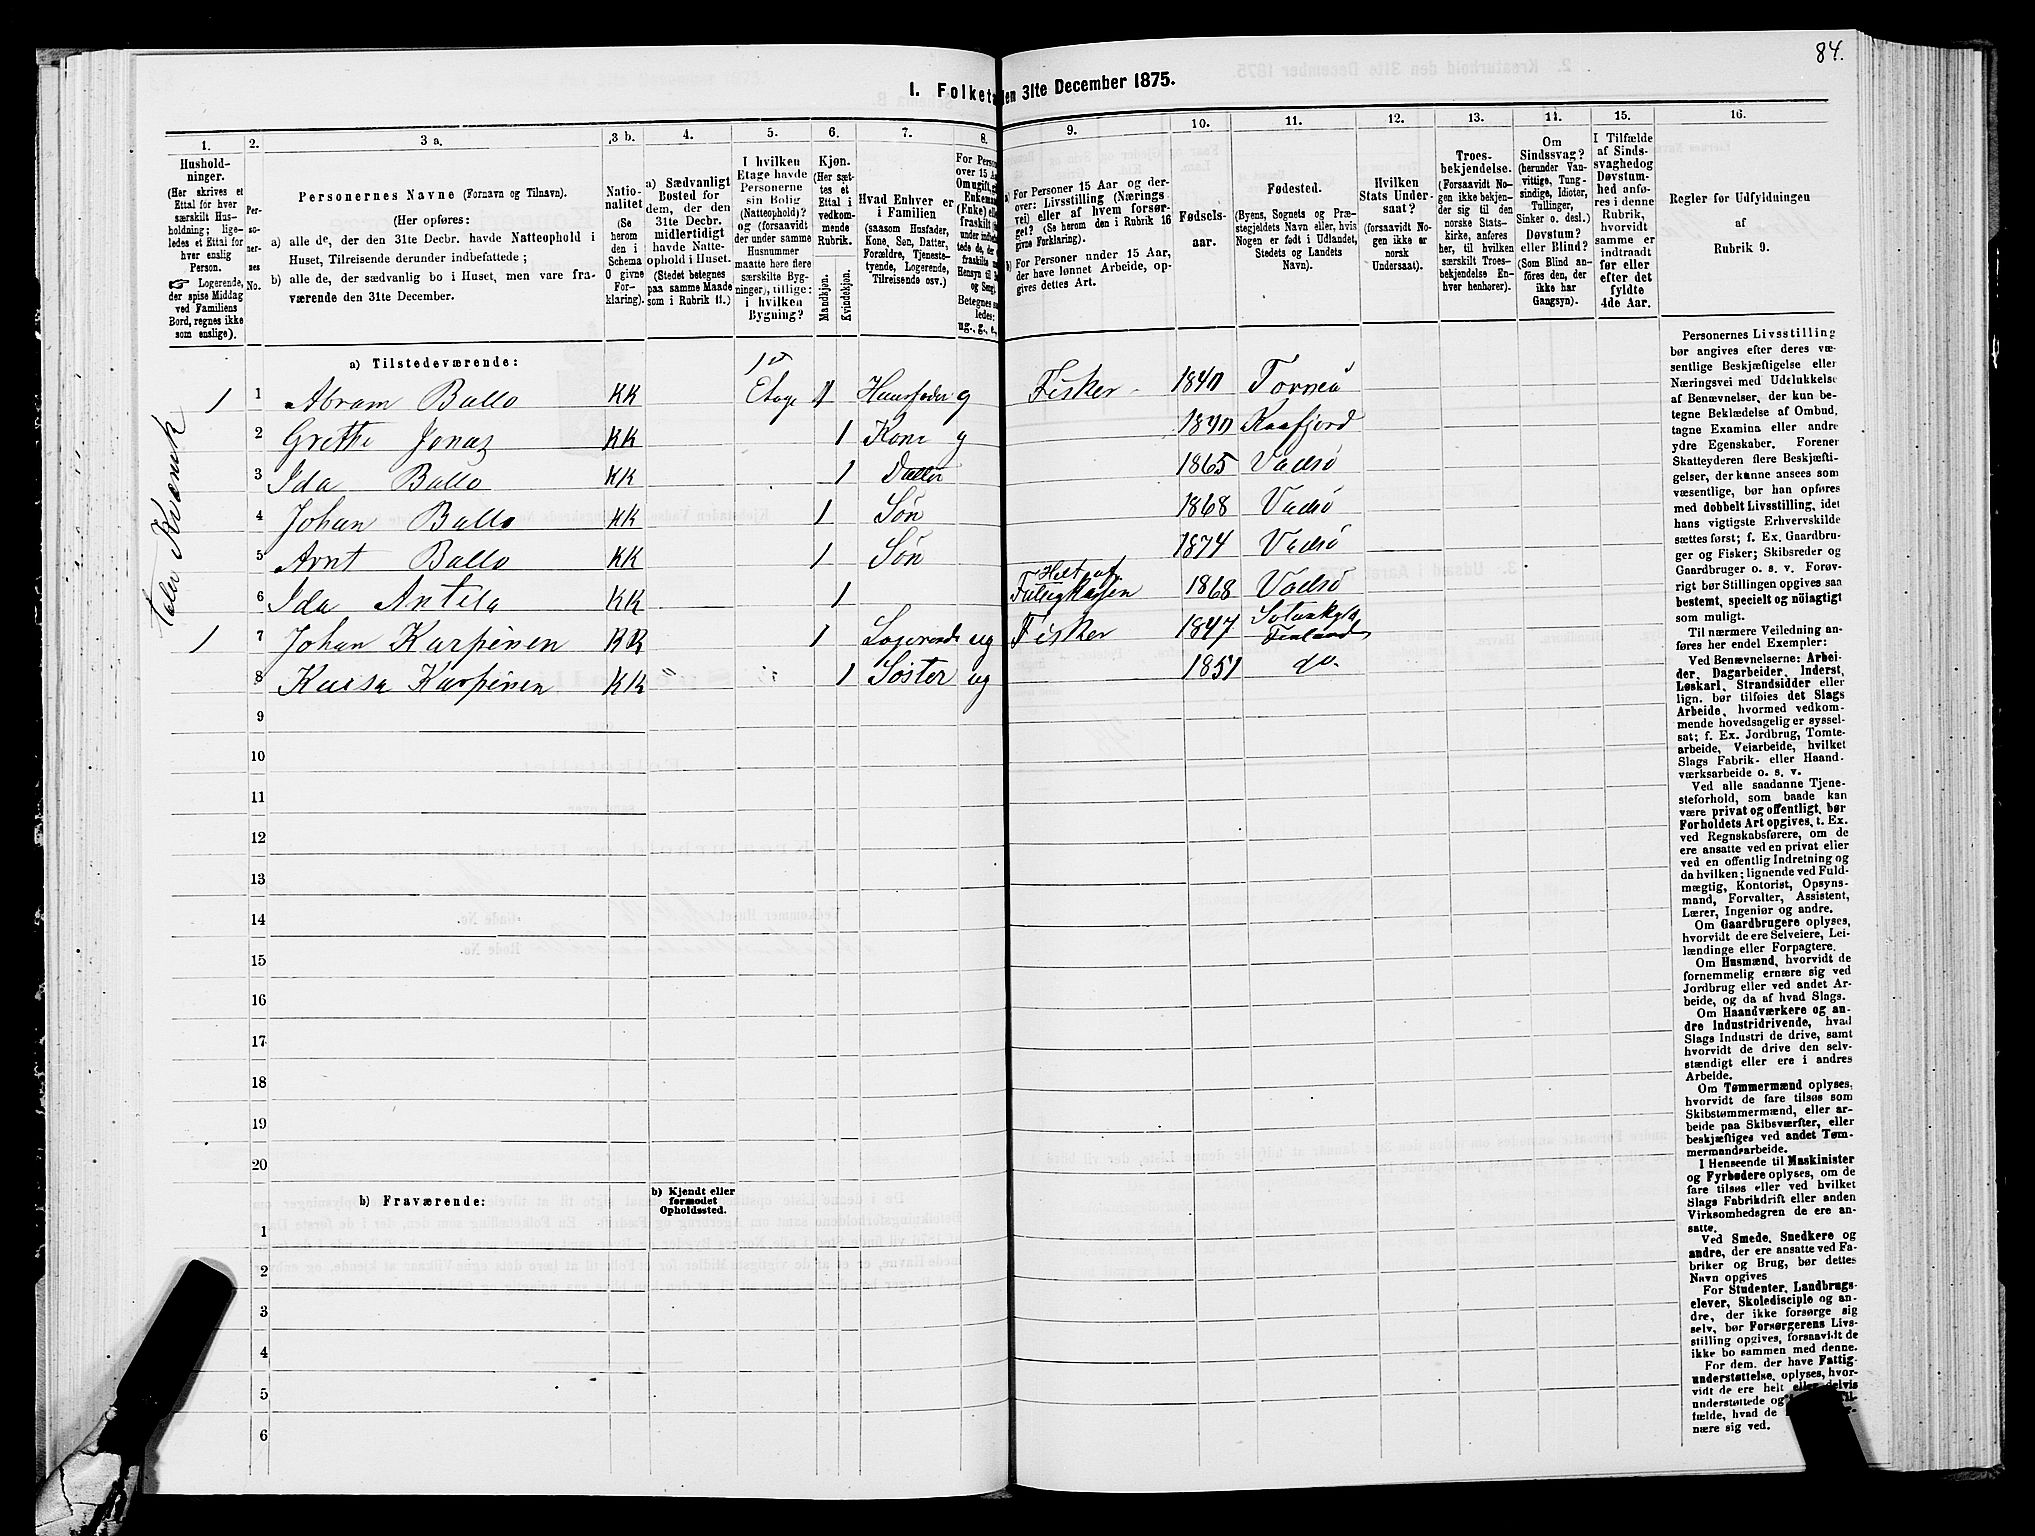 84.
1. Folketæ
den 31te December 1875.
1. 2. 3 a. 3 b. 4. 5. 6. 7. 8. 9. 10. 11. 12. 13. 11. 15. 16.
Hushold-
ninger.
(Her skrives et
Ettal for hver
særskilt Hus-
holdning; lige-
ledes et Ettal for
hver enslig
Person.
☞ Logerende,
der spise Middag
ved Familiens
Bord, regnes ikke
som enslige).
Per-
so-
ner-
nes
No.
Personernes Navne (Fornavn og Tilnavn).
(Her opføres:
a) alle de, der den 31te Decbr. havde Natteophold i
Huset, Tilreisende derunder indbefattede;
b) alle de, der sædvanlig bo i Huset, men vare fra-
værende den 31te December.
Natio-
nalitet
(Se
herom
den i
Schema
O givne
For-
klaring).
a) Sædvanligt
Bosted for
dem, der den
31te Decbr.
midlertidigt
havde Natte-
ophold i Huset.
(Stedet betegnes
paa samme Maade
som i Rubrik 11.)
I hvilken
Etage havde
Personerne
sin Bolig
(Natteophold)?
og (forsaavidt
der under samme
Husnummer
maatte høre flere
særskilte Byg-
ninger), tillige:
i hvilken
Bygning?
Kjøn.
(Her sæt-
tes et
Ettal i
vedkom-
mende
Rubrik.
Mandkjøn.
Kvindekjøn.
Hvad Enhver er
i Familien
(saasom Husfader,
Kone, Søn, Datter,
Forældre, Tjeneste-
tyende, Logerende,
Tilreisende osv.)
For Person
over 15 Aar
Om ugift, gi
Enkeman
(Enke) elle
fraskilt
under indbe
tede de, der
fraskilte
Hensyn til
og Seng
Betegnes sa
ledes:
ug., g., e.,
a) For Personer 15 Aar og der-
over: Livsstilling (Nærings-
vei) eller af hvem forsør-
get? (Se herom i Rubrik 16
givne Forklaring).
b) For Personer under 15 Aar,
der have lønnet Arbeide, op-
gives dettes Art.
Fødsels-
aar.
Fødested.
(Byens, Sognets og Præ-
stegjeldets Navn eller, hvis
Nogen er født i Udlandet,
Stedets og Landets
Navn).
Hvilken
Stats Under-
saat?
(forsaavidt No-
gen ikke er
norsk
Undersaat).
Troes-
bekjendelse.
(Forsaavidt No-
gen ikke bekjen-
der sig til den
norske Stats-
kirke, anføres
her, til hvilken
særskilt Troes-
bekjendelse En-
hver henhører).
Om
Sindssvag?
(herunder Van-
vittige, Tung-
sindige, Idioter,
Tullinger,
Sinker o. desl.)
Døvstum?
eller Blind?
(Som Blind an-
føres den, der
ikke har
Gangsyn).
I Tilfælde
af Sinds-
svaghed og
Døvstum-
hed anfø-
res i denne
Rubrik,
hvorvidt
samme er
indtraadt
før eller
efter det
fyldte
4de Aar.
Regler for Udfyldningen
af
Rubrik 9.
a) Tilstedeværende:
taler Kvænsk
1 1 Abram Ballo KK 1st Etage 1 Huusfader g Fisker 1840 Torneå
2 Grethe Jonas KK 1 Kone g 1840 Kaafjord
3 Ida Ballo KK 1 Datter 1865 Vadsø
4 Johan Ballo KK 1 Søn 1868 Vadsø
5 Arnt Ballo KK 1 Søn 1874 Vadsø
6 Ida Antila KK 1 Helt af Fattigkassen 1868 Vadsø
1 7 Johan Karpinen KK 1 Logerende ug Fisker 1847 Finland
8 Kaisa Karpinen KK 1 Søster ug 1851 do.
9
10
11
12
13
14
15
16
17
18
19
20
b) Fraværende:
b) Kjendt eller
formodet
Opholdssted.
1
2
3
4
5
6
Personernes Livsstilling
bør angives efter deres væ-
sentlige Beskjæftigelse eller
Næringsvei med Udelukkelse
af Benævnelser, der kun be-
tegne Beklædelse af Ombud,
tagne Examina eller andre
ydre Egenskaber. Forener
Skatteyderen flere Beskjæfti-
gelser, der kunne ansees som
væsentlige, bør han opføres
med dobbelt Livsstilling, idet
hans vigtigste Erhvervskilde
sættes først; f. Ex. Gaardbru-
ger og Fisker; Skibsreder og
Gaardbruger o. s. v. Forøv-
rigt bør Stillingen opgives saa
bestemt, specielt og nöiagtigt
som muligt.
Til nærmere Veiledning an-
føres her endel Exempler:
Ved Benævnelserne: Arbei-
der, Dagarbeider, Inderst,
Løskarl, Strandsidder eller
lign. bør tilføies det Slags
Arbeide, hvormed vedkom-
mende hovedsagelig er syssel-
sat; f. Ex. Jordbrug, Tomte-
arbeide, Veiarbeide, hvilket
Slags Fabrik- eller Haand-
værksarbeide o. s. v.
Ved alle saadanne Tjene-
steforhold, som baade kan
være privat og offentligt, bør
Forholdets Art opgives, t. Ex.
ved Regnskabsførere, om de
ere ansatte ved en privat eller
ved en offentlig Indretning og
da hvilken; lignende ved Fuld-
mægtig, Kontorist, Opsyns-
mand, Forvalter, Assistent,
Lærer, Ingeniør og andre.
Om Gaardbrugere oplyses,
hvorvidt de ere Selveiere, Lei-
lændinge eller Forpagtere.
Om Husmænd, hvorvidt de
fornemmelig ernære sig ved
Jordbrug eller ved andet Ar-
beide, og da af hvad Slags.
Om Haandværkere og an-
dre Industridrivende, hvad
Slags Industri de drive, samt
hvorvidt de drive den selv-
stændigt eller ere i andres
Arbeide.
Om Tømmermænd oplyses,
hvorvidt de fare tilsøs som
Skibstømmermænd, eller ar-
beide paa Skibsværfter, eller
beskjæftiges ved andet Tøm-
mermandsarbeide.
I Henseende til Maskinister
og Fyrbødere oplyses, om de
fare tilsøs eller ved hvilket
Slags Fabrikdrift eller anden
Virksomhedsgren de ere an-
satte.
Ved Smede, Snedkere og
andre, der ere ansatte ved Fa-
briker og Brug, bør dettes
Navn opgives
For Studenter, Landbrugs-
elever, Skoledisciple og an-
dre, der ikke forsørge sig
selv, bør Forsørgerens Livs-
stilling opgives, forsaavidt de
ikke bo sammen med denne.
For dem, der have Fattig-
understøttelse, oplyses, hvor-
vidt de ere helt eller delvis
understøttede og
fælde, hvad de
nære sig ved.